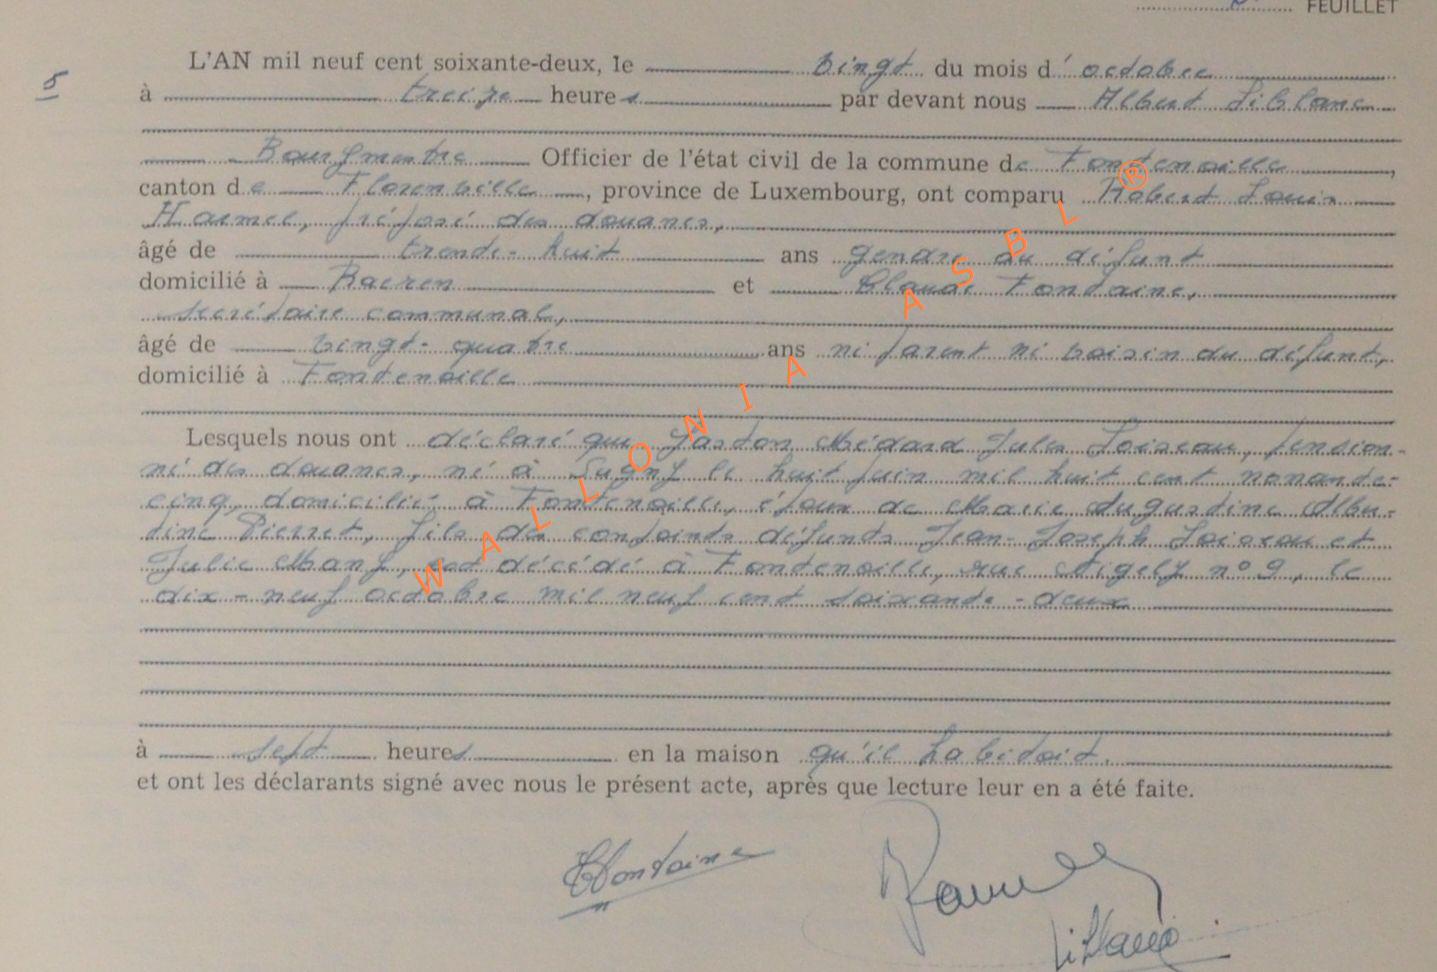 FEUILLET
5
L'AN mil neuf cent soixante-deux, le vingt du mois d'octobre
à treize heures par devant nous Albert Liblanc
Bourgmestre Officier de l'état civil de la commune de Fontenoille,
canton de Florenville, province de Luxembourg, ont comparu Robert Louis
Hamel, préposé des douanes,
âgé de trente-huit ans gendre du défunt
domicilié à Raeren et Claude Fontaine,
secrétaire communal,
âgé de vingt-quatre ans ni parent ni voisin du défunt,
domicilié à Fontenoille
Lesquels nous ont déclaré que Gaston Médard Jules Loiseau, pension-
né des douanes, né à Sugny le huit juin mil huit cent nonante-
cinq, domicilié à Fontenoille, époux de Marie Augustine Albu-
dine Pierret, fils de conjoints défunts Jean-Joseph Loiseau et
Julie Many, est décédé à Fontenoille, rue n° 9, le
dix-neuf octobre mil neuf cent soixante-deux
à sept heures en la maison qu'il habitait.
et ont les déclarants signé avec nous le présent acte, après que lecture leur en a été faite.
CFontaine
WALLONIA ASBL ®